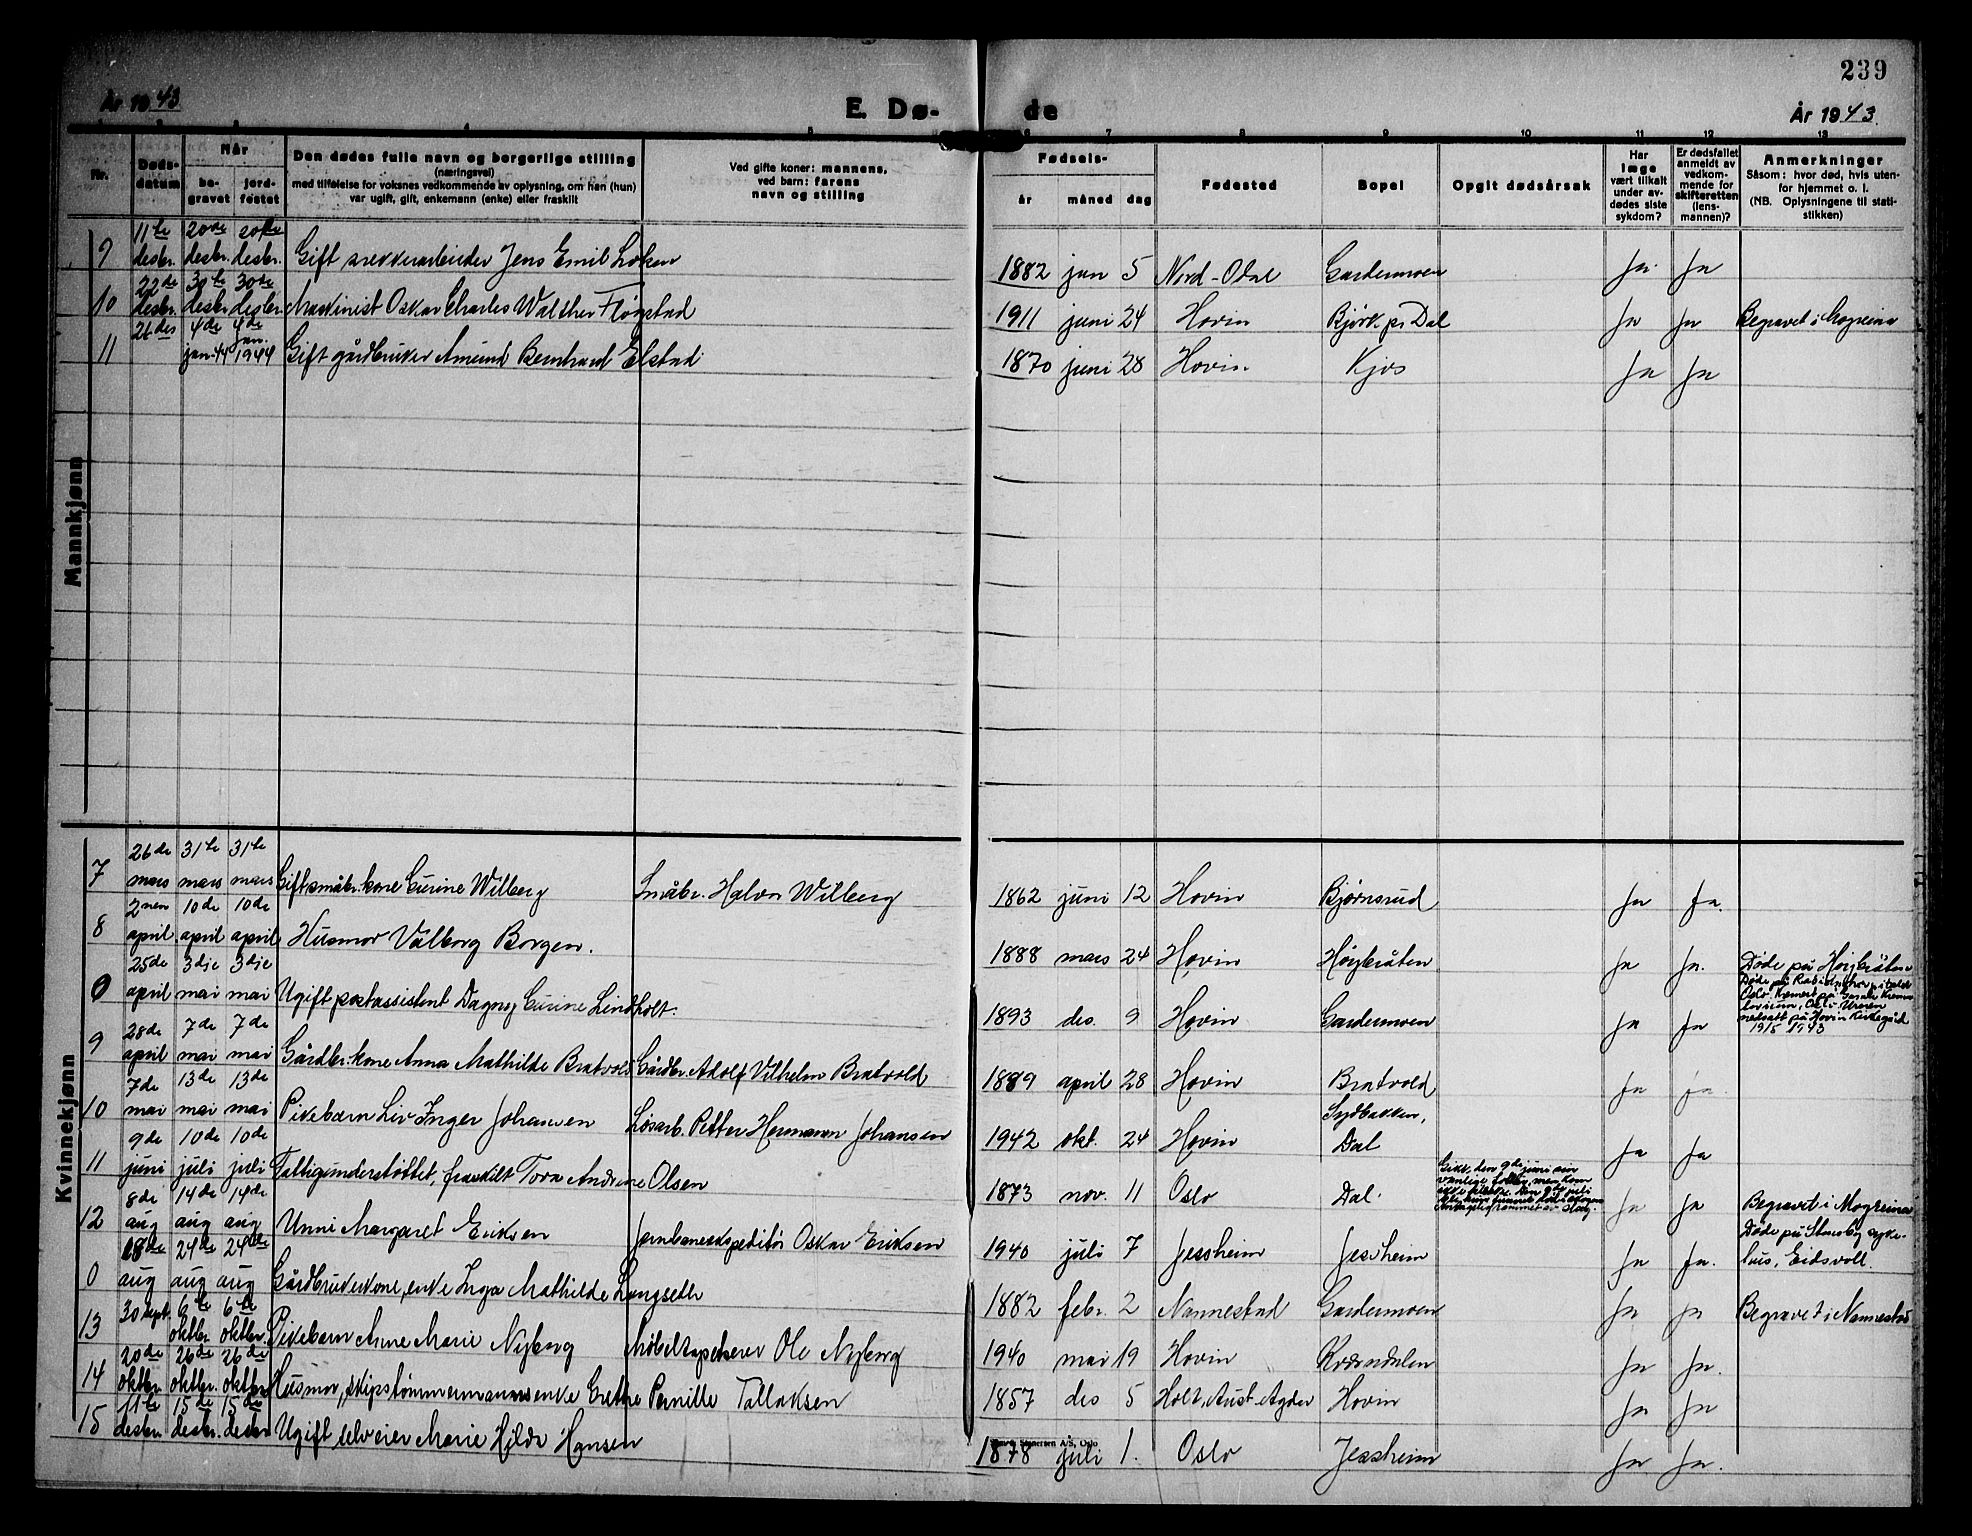 239
År 1943
E. Dø-
de
År 1943
1 2 3 4 5 6 7 8 9 10 11 12 13
Nr.
Døds-
datum
Når
be-
gravet
jord-
festet
Den dødes fulle navn og borgerlige stilling
(næringsvei)
med tilføielse for voksnes vedkommende av oplysning, om han (hun)
var ugift, gift, enkemann (enke) eller fraskilt
Ved gifte koner: mannens,
ved barn: farens
navn og stilling
Fødsels-
år måned dag
Fødested
Bopel
Opgit dødsårsak
Har
læge
vært tilkalt
under av-
dødes siste
sykdom?
Er dødsfallet
anmeldt av
vedkom-
mende for
skifteretten
(lens-
mannen)?
Anmerkninger
Såsom: hvor død, hvis uten-
for hjemmet o. l.
(NB. Oplysningene til stati-
stikken)
Mannkjønn
9 11te desbr. 20de desbr. 20de desbr. Gift Jens Emil Løken 1882 jan 5 Nord-Odal Gardermoen Ja Ja
10 22de desbr. 30te desbr. 30de desbr. Maskinist Oskar Charles Walther Fløgstad 1911 juni 24 Hovin Bjørk pr Dal Ja Ja Begravet i Mogreina
11 26 des 4de jan-44 4de jan. 1944 Gift gårdbruker Amund Bernhard Elstad 1870 juni 28 Hovin Kjos Ja Ja
Kvinnekjønn
7 26de mars 31te mars 31te mars Gift småbr. kone Gurine Wilberg Småbr. Halvor Wilberg 1862 juni 12 Hovin Bjørnsrud Ja Ja.
8 2nen april 10de april 10de april Husmor Valborg Borgen. 1888 mars 24 Hovin Høybråten Ja Ja. Døde på Høybråten
0 25de april 3dje mai 3dje mai Ugift postassistent Dagny Gurine Lindholt. 1893 des. 9 Hovin Gardermoen Ja Ja Døde på Radiumhospitalet
Oslo. Kremert på
Oslo. Urnen
nedsatt på Hovin Kirkegård
1943
9 28de april 7de mai 7de mai Gårdbr. kone Anna Mathilde Bratvold Gårdbr. Adolf Vilhelm Bratvold 1889 april 28 Hovin Bratvold Ja Ja
10 7de mai 13de mai 13de mai Pikebarn Liv Inger Johansen Løsarb. Petter Hermann Johansen 1942 okt. 24 Hovin Sydbakken, Dal Ja Ja
11 9de juni 10de juli 10de juli Fattigunderstøttet, fraskilt Tora Andrine Olsen 1873 nov. 11 Oslo Dal. Gikk den 9de juni sin
vanlige
Ja Ja Begravet i Mogreina
12 8de aug 14de aug 14de aug Unni Margaret Eriksen Jernbaneekspeditør Oskar Eriksen 1940 juli 7 Jessheim Jessheim Ja Ja. Døde på Stensby syke-
hus, Eidsvoll.
0 18de aug 24de aug 24de aug Gårdbrukerkone, enke Inga Mathilde Langseth 1882 febr. 2 Nannestad Gardermoen Ja Ja Begravet i Nannestad
13 30 sept. 6te oktbr. 6te oktbr. Pikebarn Anne Marie Nyborg Møbeltapetserer Ole Nyborg 1940 mai 19 Hovin Ja Ja.
14 20de oktbr. 26de oktbr. 26de oktbr Husmor, skipstømmermannsenke Grethe Pernille Tallaksen 1857 des 5 Holt, Aust-Agder Hovin Ja Ja.
15 11te desbr. 15de desbr. 15de desbr Ugift selveier Marie Hilda Hansen 1878 juli 1. Oslo Jessheim Ja Ja.
A/S, Oslo